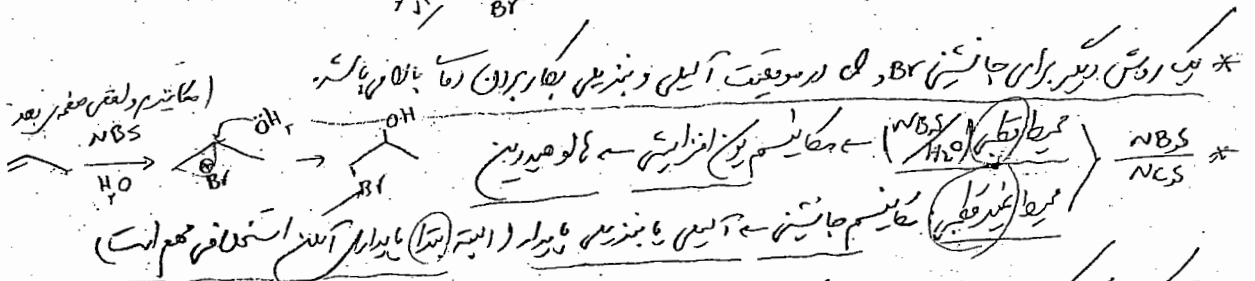 Br
* یک روش دیگر برای جانشینی Br و Cl در موقعیت آلیلی و بنزیلی بکار بردن دما بالا می‌باشد.
(مکانیسم واقعی صفحه‌ی بعد
* NBS / NCS
محیط قطبی (NBS/H₂O) ← مکانیسم یون افزایشی ← هالوهیدرین
محیط غیرقطبی: مکانیسم جانشینی ← آلیلی یا بنزیلی پایدار (البته ابتدا پایداری آلکن استخلافی مهم است)
NBS
H₂O
Br
ÖH₂
OH
Br